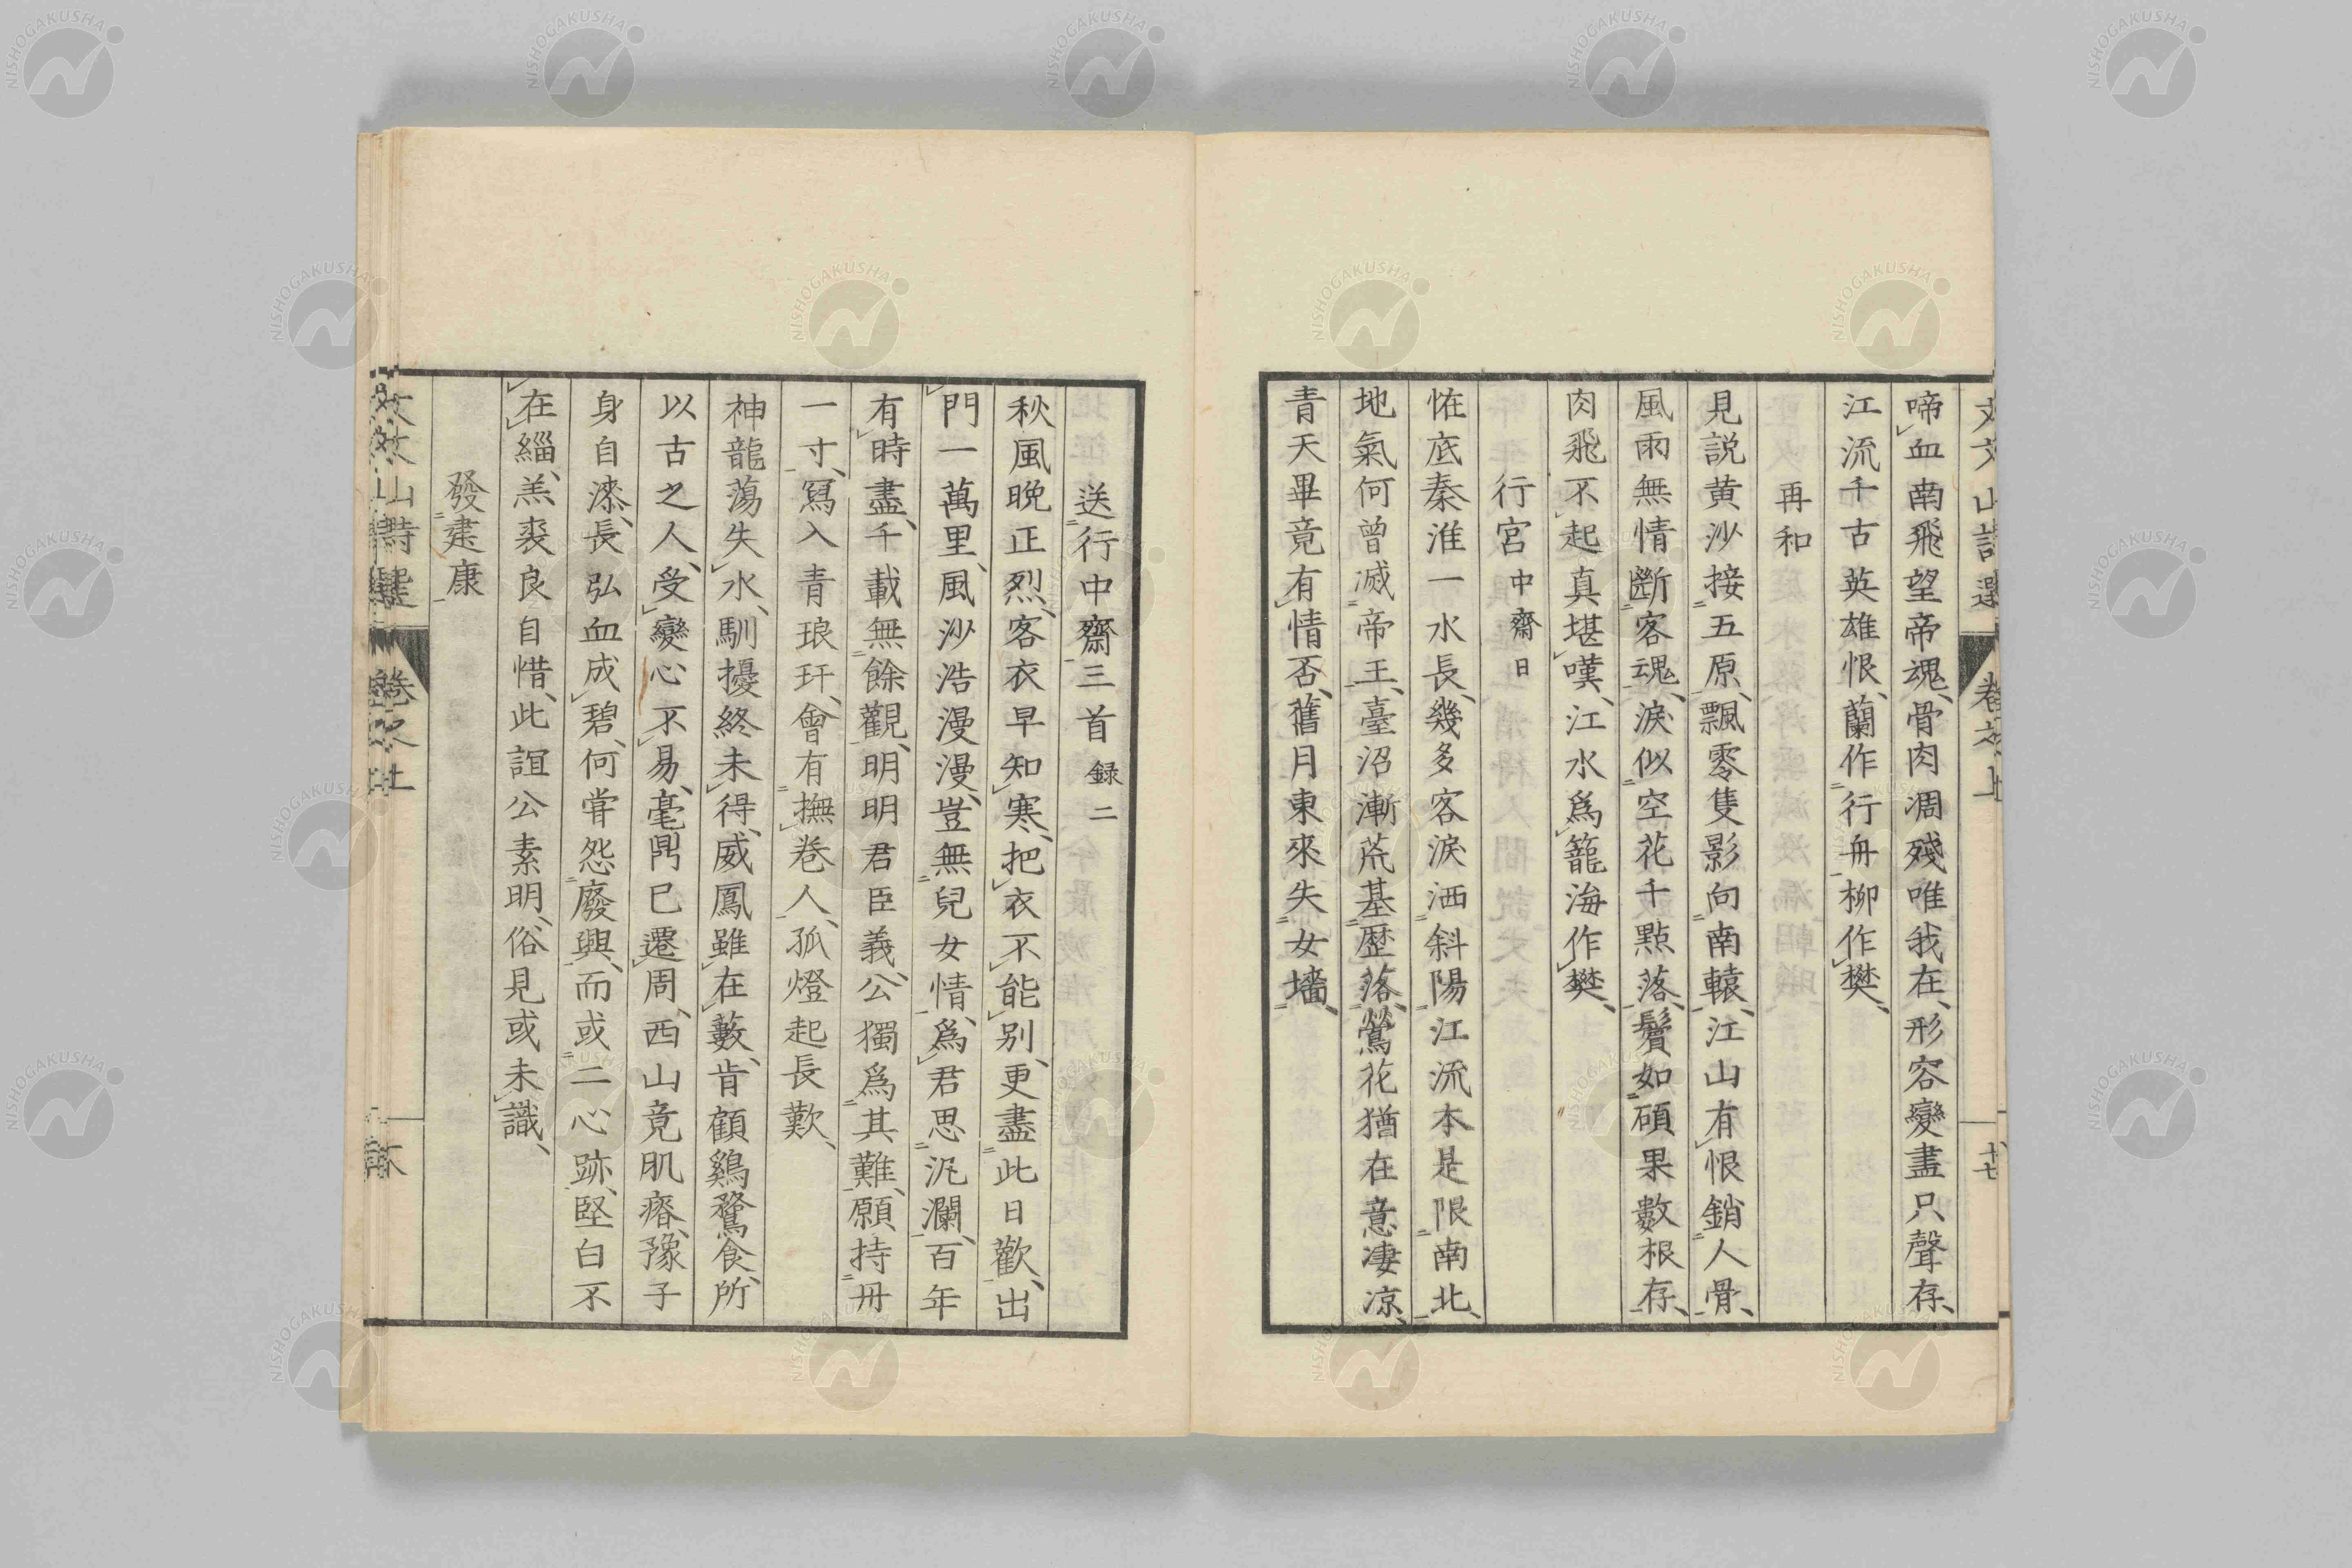 啼血南飛望帝魂、骨肉凋殘唯我在、形容變盡只聲存、
江流千古英雄恨、蘭作行舟柳作樊、
再和
見説黄沙接五原、飄零隻影向南轅、江山有恨銷人骨、
風雨無情斷客魂、淚似空花千點落、鬢如碩果數根存、
肉飛不起真堪嘆、江水爲籠海作樊、
行宮 中齋曰
恠底秦淮一水長、幾多客淚洒斜陽江流本是限南北、
地氣何曾滅帝王、臺沼漸荒基歴落、鶯花猶在意凄凉、
青天畢竟有情否、舊月東來失女墻、
送行中齋三首 録二
秋風晩正烈、客衣早知寒、把衣不能别、更盡此日歡、出
門一萬里、風沙浩漫漫、豈無兒女情、爲君思汍瀾、百年
有時盡、千載無餘觀、明明君臣義、公獨爲其難、願持冊
一寸、寫入青琅玕、會有撫卷人、孤燈起長歎、
神龍蕩失水、馴擾終未得、威鳳雖在藪、肯顧鷄鶩食、所
以古之人、受變心不易、毫鬥已遷周、西山竟肌瘠、豫子
身自漆、長弘血成碧、何甞怨廢興、而或二心跡、堅白不
在緇、羔裘良自惜、此誼公素明、俗見或未識、
發建康
文文山詩選 卷之上
NISHOGAKUSHA